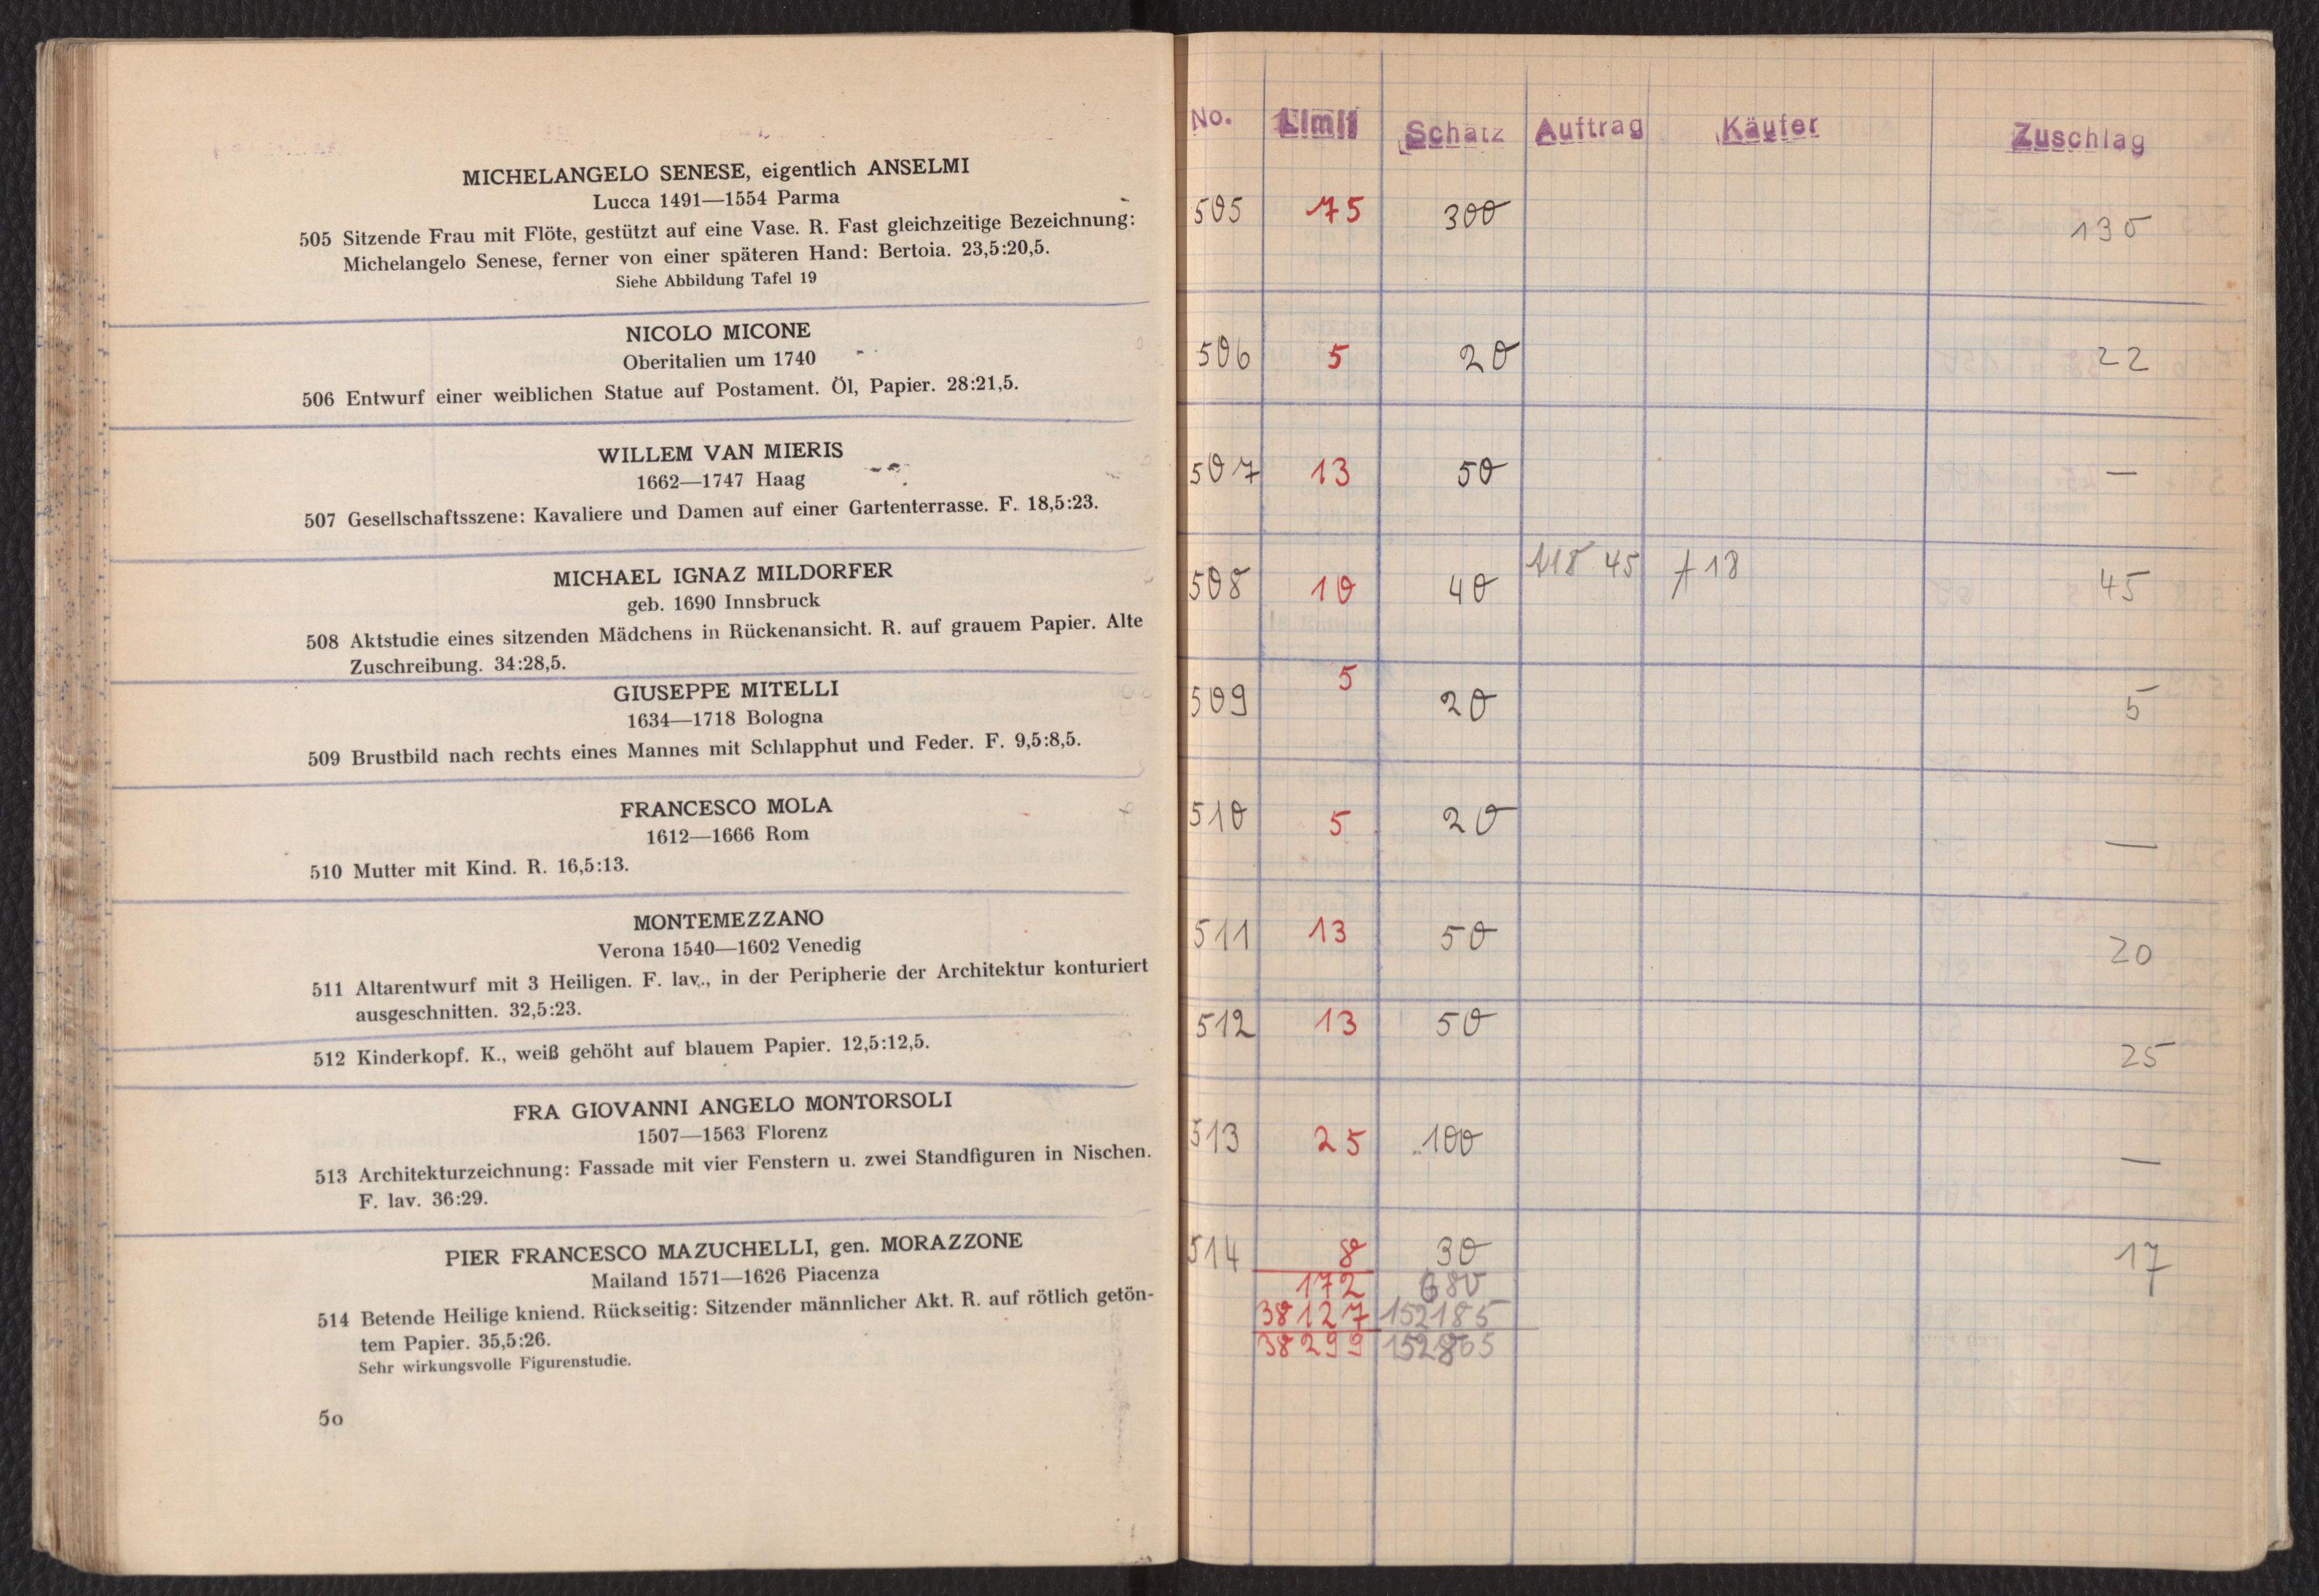 MICHELANGELO SENESE, eigentlich ANSELMI
Lucca 1491—1554 Parma
505 Sitzende Frau mit Flöte, gestützt auf eine Vase. R. Fast gleichzeitige Bezeichnung:
Michelangelo Senese, ferner von einer späteren Hand: Bertoia. 23,5:20,5.
Siehe Abbildung Tafel 19
NICOLO MICONE
Oberitalien um 1740
506 Entwurf einer weiblichen Statue auf Postament. Öl, Papier. 28:21,5.
WILLEM VAN MIERIS
1662—1747 Haag
507 Gesellschaftsszene: Kavaliere und Damen auf einer Gartenterrasse. F. 18,5:23.
MICHAEL IGNAZ MILDORFER
geb. 1690 Innsbruck
508 Aktstudie eines sitzenden Mädchens in Rückenansicht. R. auf grauem Papier. Alte
Zuschreibung. 34:28,5.
GIUSEPPE MITELLI
1634—1718 Bologna
509 Brustbild nach rechts eines Mannes mit Schlapphut und Feder. F. 9,5:8,5.
FRANCESCO MOLA
1612—1666 Rom
510 Mutter mit Kind. R. 16,5:13.
MONTEMEZZANO
Verona 1540—1602 Venedig
511 Altarentwurf mit 3 Heiligen. F. lav., in der Peripherie der Architektur konturiert
ausgeschnitten. 32,5:23.
512 Kinderkopf. K., weiß gehöht auf blauem Papier. 12,5:12,5.
FRA GIOVANNI ANGELO MONTORSOLI
1507—1563 Florenz
513 Architekturzeichnung: Fassade mit vier Fenstern u. zwei Standfiguren in Nischen.
F. lav. 36:29.
PIER FRANCESCO MAZUCHELLI, gen. MORAZZONE
Mailand 1571—1626 Piacenza
514 Betende Heilige kniend. Rückseitig: Sitzender männlicher Akt. R. auf rötlich getön-
tem Papier. 35,5:26.
Sehr wirkungsvolle Figurenstudie.
50
No. Limit Schätz Auftrag Käufer Zuschlag
505 75 300 130
506 5 20 22
507 13 50 —
508 10 40 45 18 45
509 5 20 5
510 5 20 —
511 13 50 20
512 13 50 25
513 25 100 —
514 8 30 17
172 680
38127 152185
38299 152865